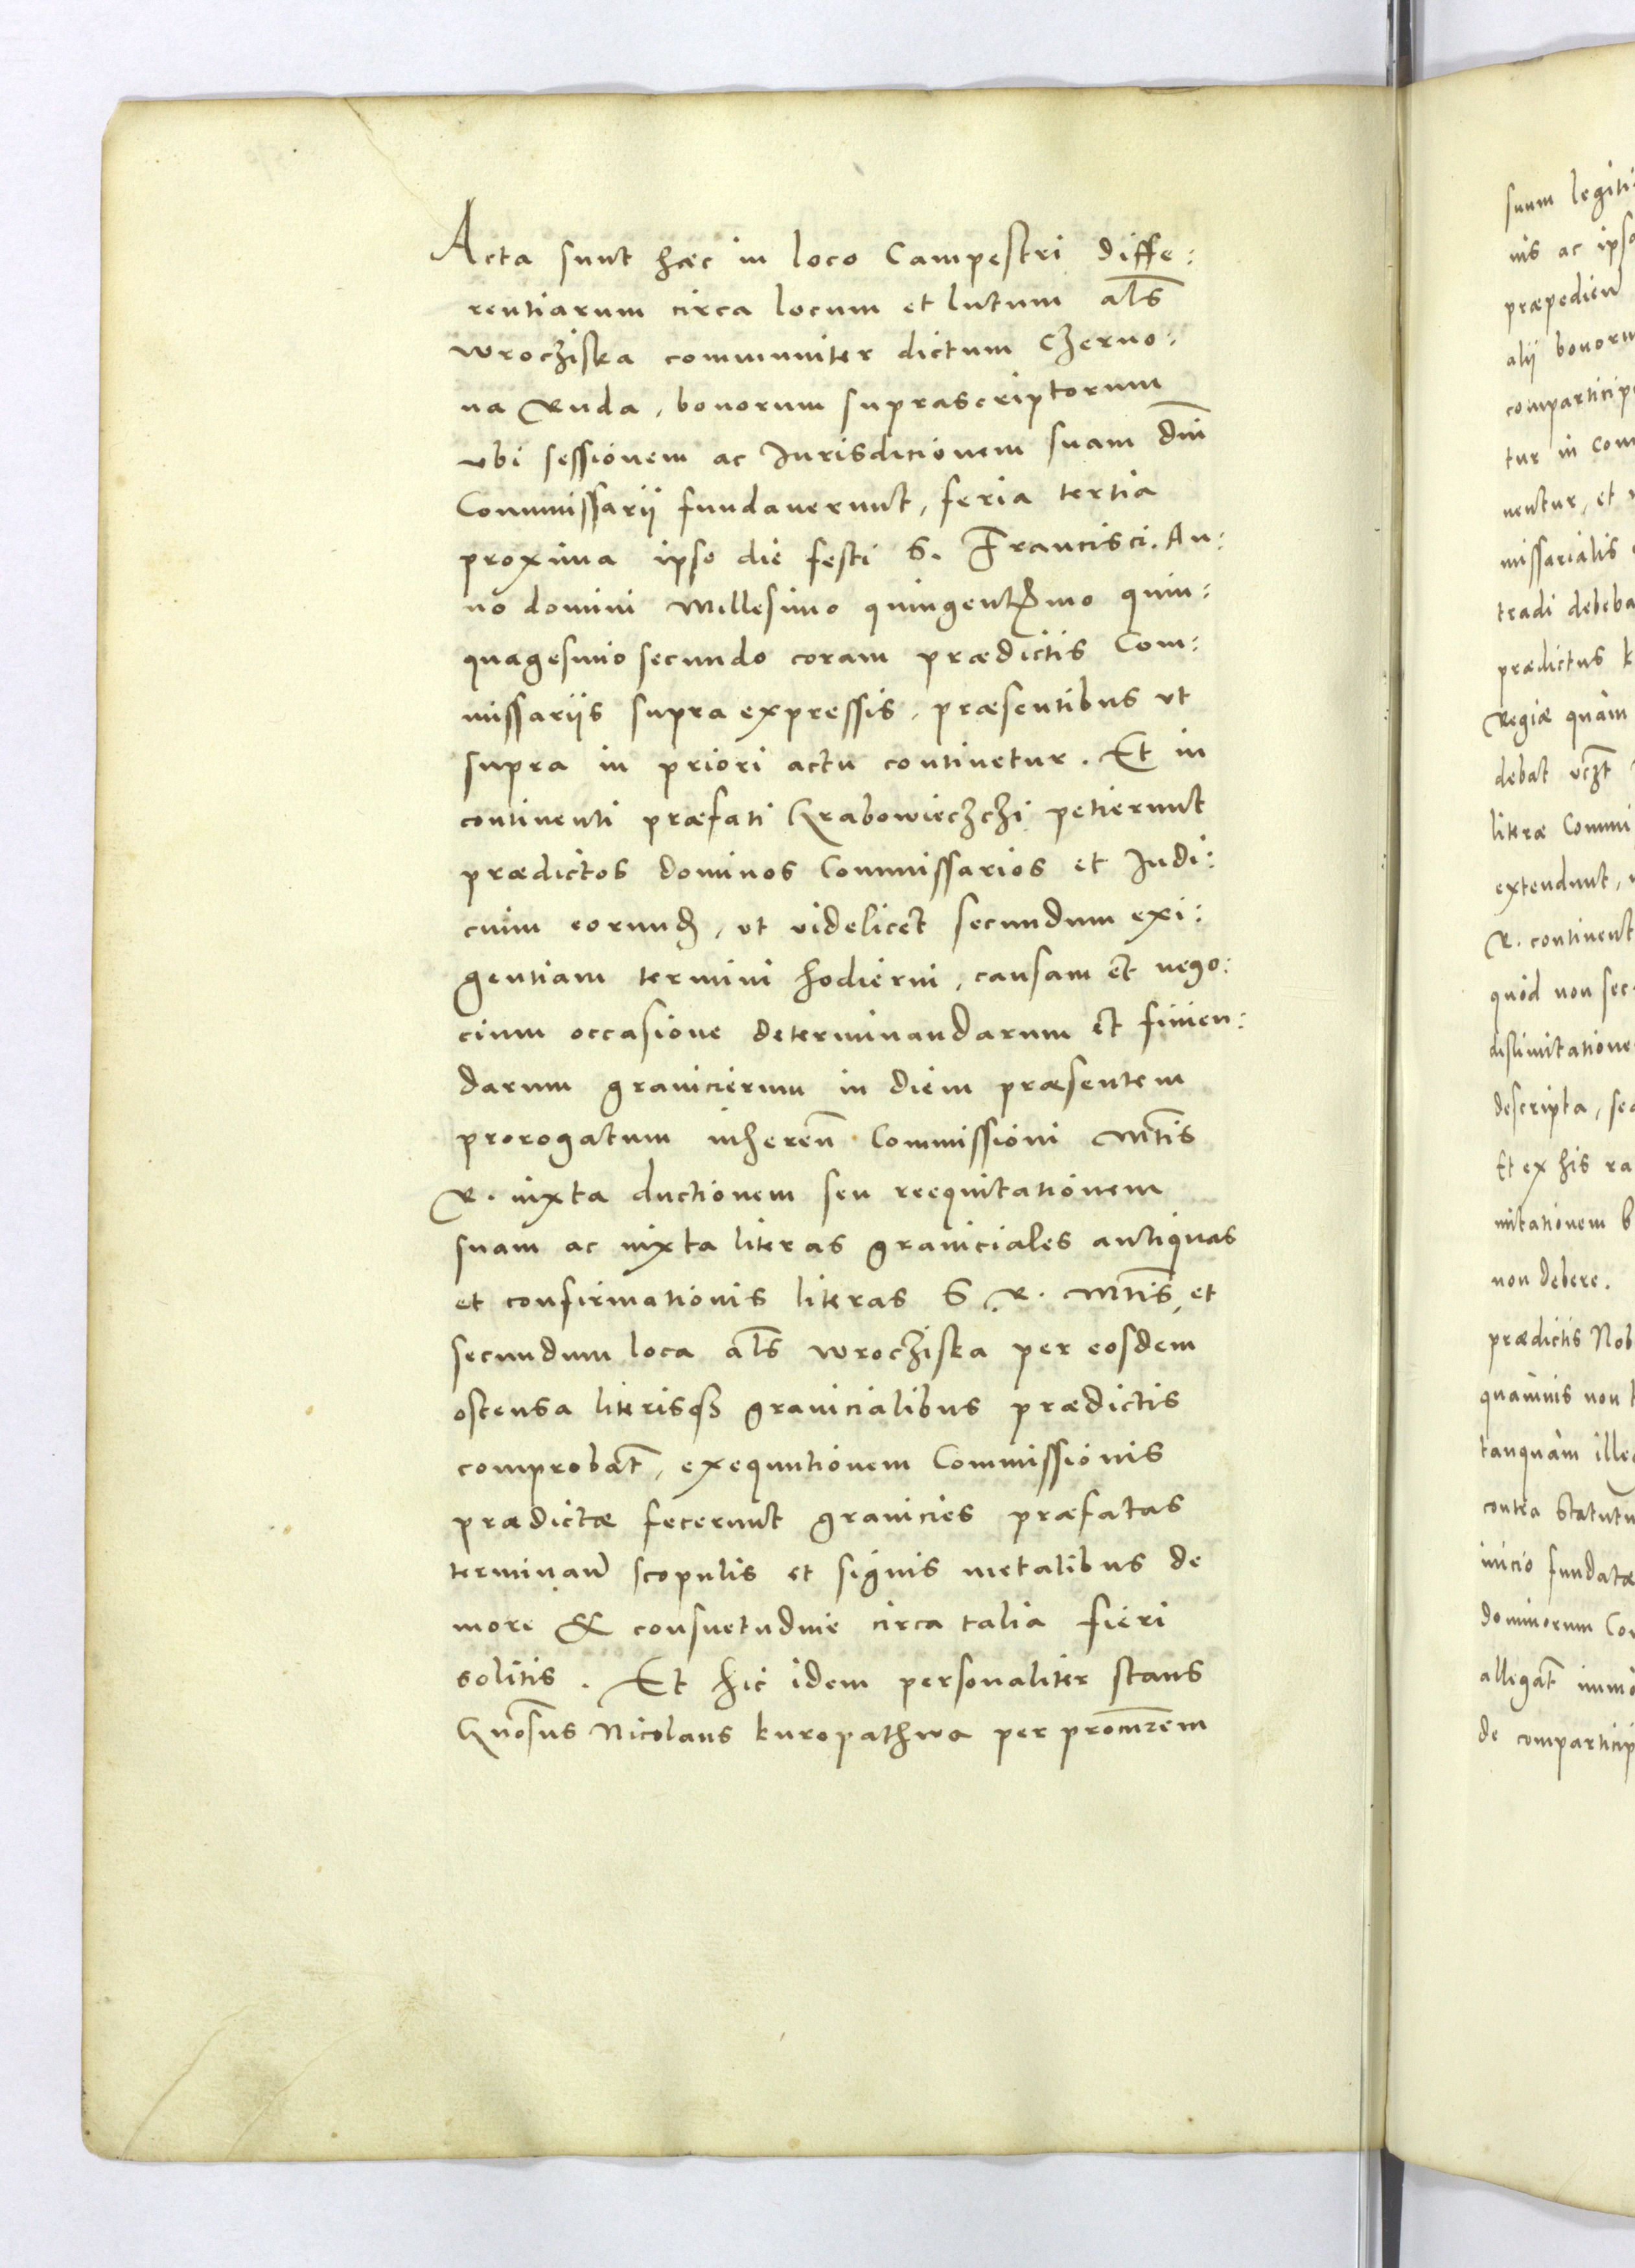 Acta sunt hæc in loco Campestri diffe:
rentiarum circa locum et lutum al̄s
wrocziska communiter dictum Czerno:
na Ruda, bonorum suprascriptorum
vbi sessionem ac Jurisdicionem suam dn̄i
Commissarij fundauerunt, feria tertia
proxima ipso die festi S. Francisci. An:
no domini Millesimo quingentesimo quin:
quagesimo secundo coram prædictis Com:
missarijs supra expressis, præsentibus vt
supra in priori actu continetur. Et in
continenti præfati Hrabowieczchi petierunt
prædictos dominos Commissarios et Judi:
cium eorund, vt videlicet secundum exi:
gentiam termini hodierni, causam et nego:
cium occasione determinandarum et finien:
darum granicierum in diem præsentem
prorogatum inheren̄ Commissioni Mtīs
R. iuxta ductionem seu reequitationem
suam ac iuxta literas graniciales antiquas
et confirmationis literas S. R. Mtīs, et
secundum loca al̄s wrocziska per eosdem
ostensa literisq granicialibus prædictis
comprobat̄, exequutionem Commissionis
prædictæ fecerunt granicies præfatas
terminan̄ scopulis et signis metalibus de
more & consuetudine circa talia fieri
solitis. Et hic idem personaliter stans
Gn̄osus Nicolaus kuropathwa per procur̄em
suum legiti
nis ac ipso
præpedien̄
alij bonoru
comparticip
tur in com
nentur, et
missarialis
tradi debeba
prædictus k
Regiæ quàm
debat vcz̄t
literæ Commi
extendunt,
R. continent
quòd non sec
dislimitatione
descripta, sed
Et ex his ra
mitationem b
non debere.
prædictis Nob
quamuis non
tanquàm illeg
contra Statutu
inicio fundatæ
dominorum Co
allegat̄ immò
de comparticip